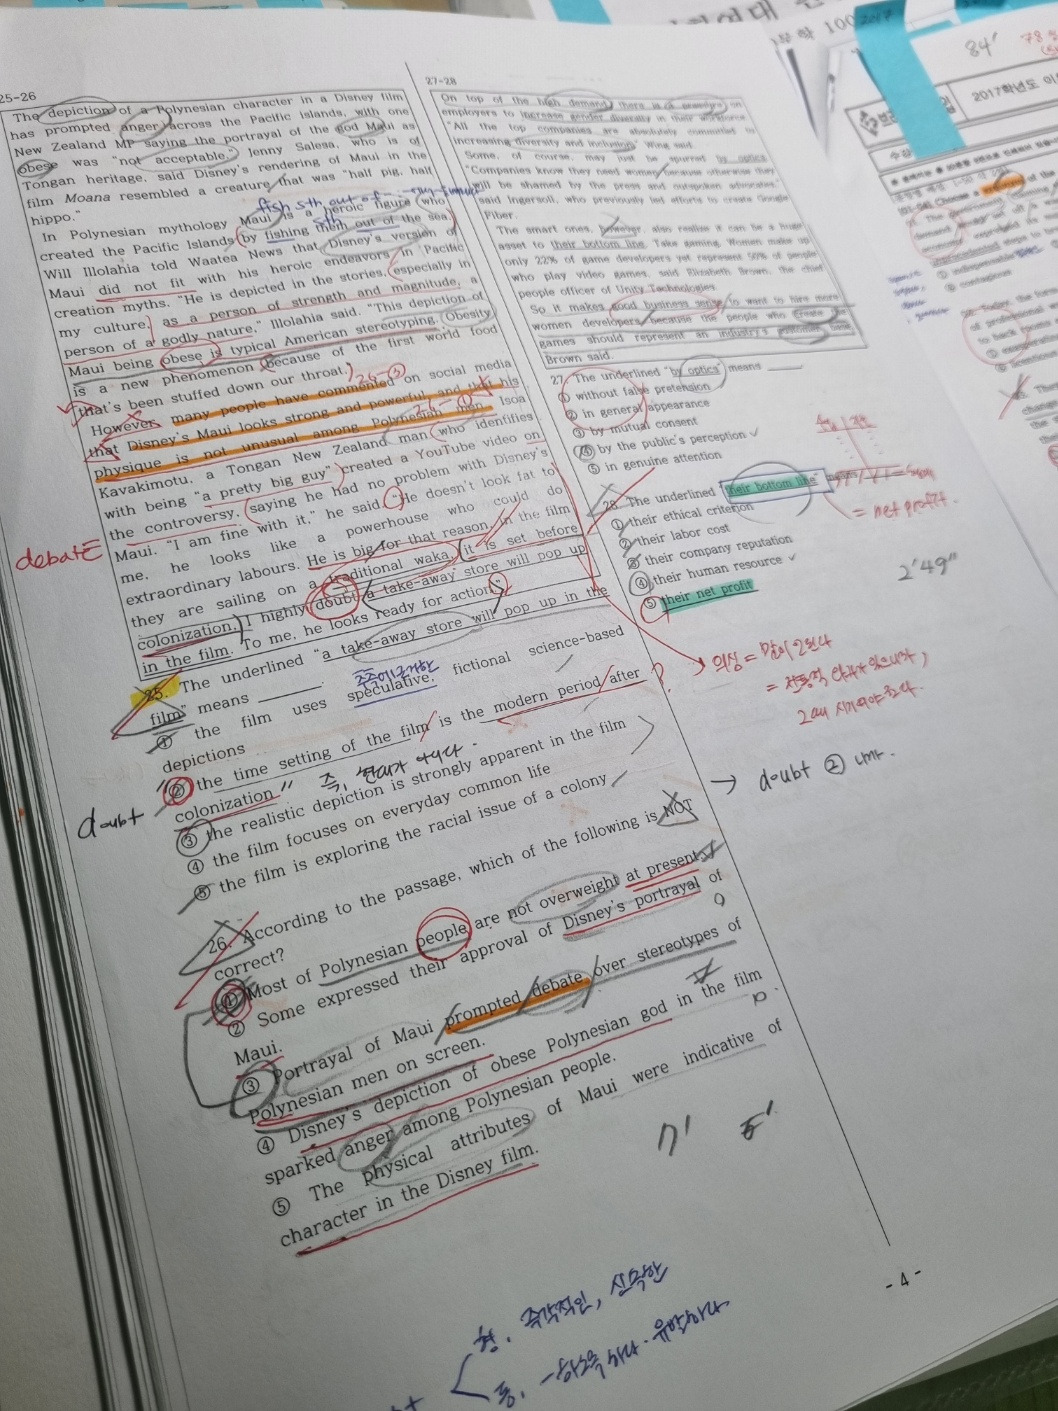 25-26
The depiction of a Polynesian character in a Disney film
has prompted anger across the Pacific Islands, with one
New Zealand MP saying the portrayal of the god Maui as
obese was "not acceptable." Jenny Salesa, who is of
Tongan heritage, said Disney's rendering of Maui in the
film Moana resembled a creature that was "half pig, half
hippo."
fish sth out of
sth
In Polynesian mythology Maui is a heroic figure who
created the Pacific Islands by fishing them out of the sea.
Will Illolahia told Waatea News that Disney's version of
Maui did not fit with his heroic endeavors in Pacific
creation myths. "He is depicted in the stories, especially in
my culture, as a person of strength and magnitude, a
person of a godly nature," Illolahia said. "This depiction of
Maui being obese is typical American stereotyping. Obesity
is a new phenomenon because of the first world food
that's been stuffed down our throat."
26-③
However, many people have commented on social media
that Disney's Maui looks strong and powerful, and that his
26-①
physique is not unusual among Polynesian men. Isoa
Kavakimotu, a Tongan New Zealand man who identifies
with being "a pretty big guy" created a YouTube video on
the controversy, saying he had no problem with Disney's
debate
Maui. "I am fine with it," he said. "He doesn't look fat to
me, he looks like a powerhouse who could do
extraordinary labours. He is big for that reason. In the film
they are sailing on a traditional waka, it is set before
colonization. I highly doubt a take-away store will pop up
in the film. To me, he looks ready for action."
25. The underlined "a take-away store will pop up in the
film" means ______.
① the film uses speculative, fictional science-based
depictions
② the time setting of the film is the modern period after
colonization
doubt
③ the realistic depiction is strongly apparent in the film
④ the film focuses on everyday common life
⑤ the film is exploring the racial issue of a colony
26. According to the passage, which of the following is NOT
correct?
① Most of Polynesian people are not overweight at present.
② Some expressed their approval of Disney's portrayal of
Maui.
③ Portrayal of Maui prompted debate over stereotypes of
Polynesian men on screen.
④ Disney's depiction of obese Polynesian god in the film
sparked anger among Polynesian people.
⑤ The physical attributes of Maui were indicative of
character in the Disney film.
7'
5'
27-28
On top of the high demand, there is a pressure on
employers to increase gender diversity in their workforce.
"All the top companies are absolutely committed to
increasing diversity and inclusion" Wing said.
Some, of course, may just be spurred by optics.
"Companies know they need women because otherwise they
will be shamed by the press and outspoken advocates,"
said Ingersoll, who previously led efforts to create Google
Fiber.
The smart ones, however, also realize it can be a huge
asset to their bottom line. Take gaming. Women make up
only 22% of game developers yet represent 50% of people
who play video games, said Elizabeth Brown, the chief
people officer of Unity Technologies.
So it makes good business sense to want to hire more
women developers, because the people who create the
games should represent an industry's potential base
Brown said.
27. The underlined "by optics" means ______
① without false pretension
② in general appearance
③ by mutual consent
④ by the public's perception
⑤ in genuine attention
28. The underlined "their bottom line"
① their ethical criterion
② their labor cost
③ their company reputation
④ their human resource
⑤ their net profit
= net profit.
2'49"
→ doubt ②
- 4 -
형. 즉각적인, 신속한
동.
84'
2017학년도